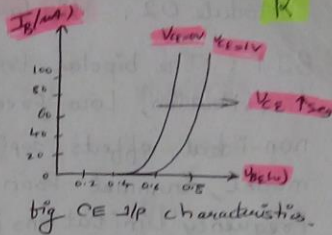 K
IB(μA)
VCE=0V VCE=1V
100
80
60
40
20
0
VCE ↑ses
0.2 0.4 0.6 0.8 VBE(v)
fig CE I/P characteristics.